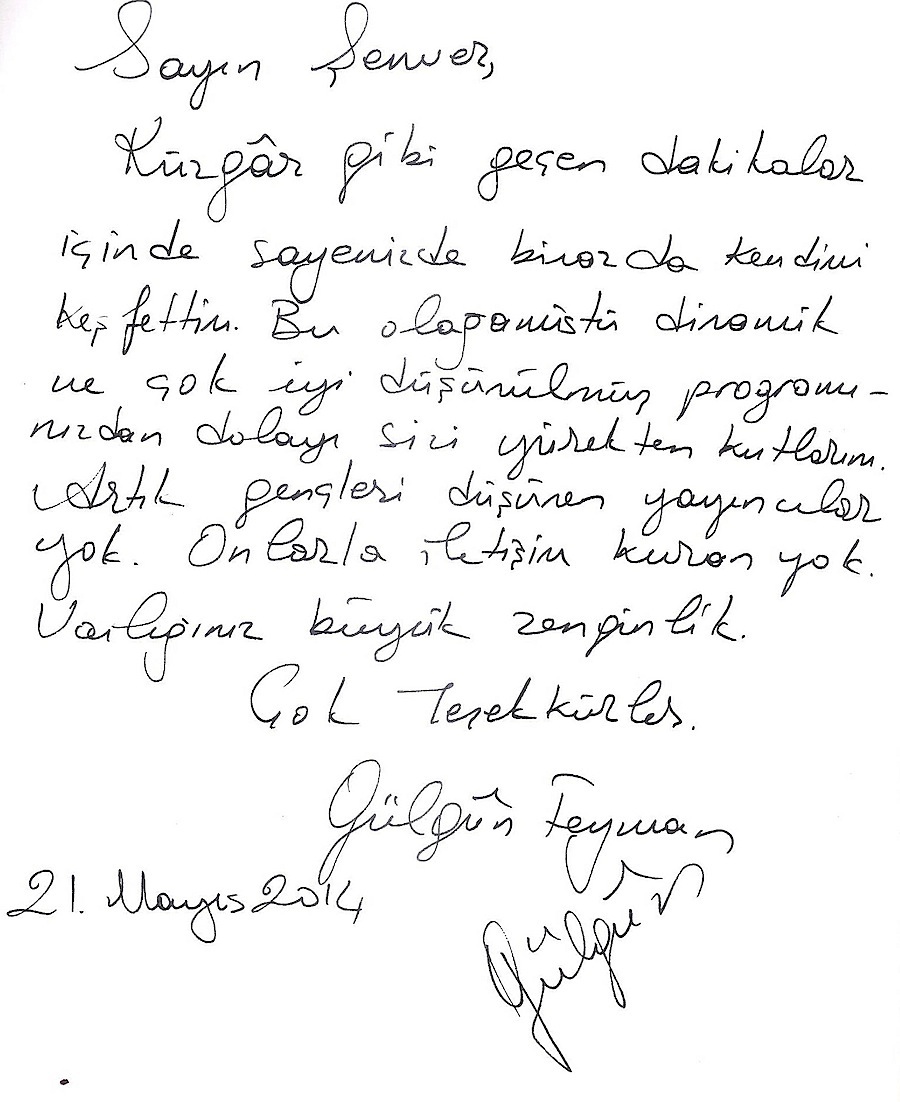 Sayın Şenver,
Rüzgâr gibi geçen dakikalar
içinde sayenizde birazda kendimi
keşfettim. Bu olağanüstü dinamik
ve çok iyi düşünülmüş programı-
nızdan dolayı sizi yürekten kutlarım.
Artık gençleri düşünen yayıncılar
yok. Onlarla iletişim kuran yok.
Varlığınız büyük zenginlik.
Çok Teşekkürler.
Gülgûn Feyman
21. Mayıs 2014
Gülgûn